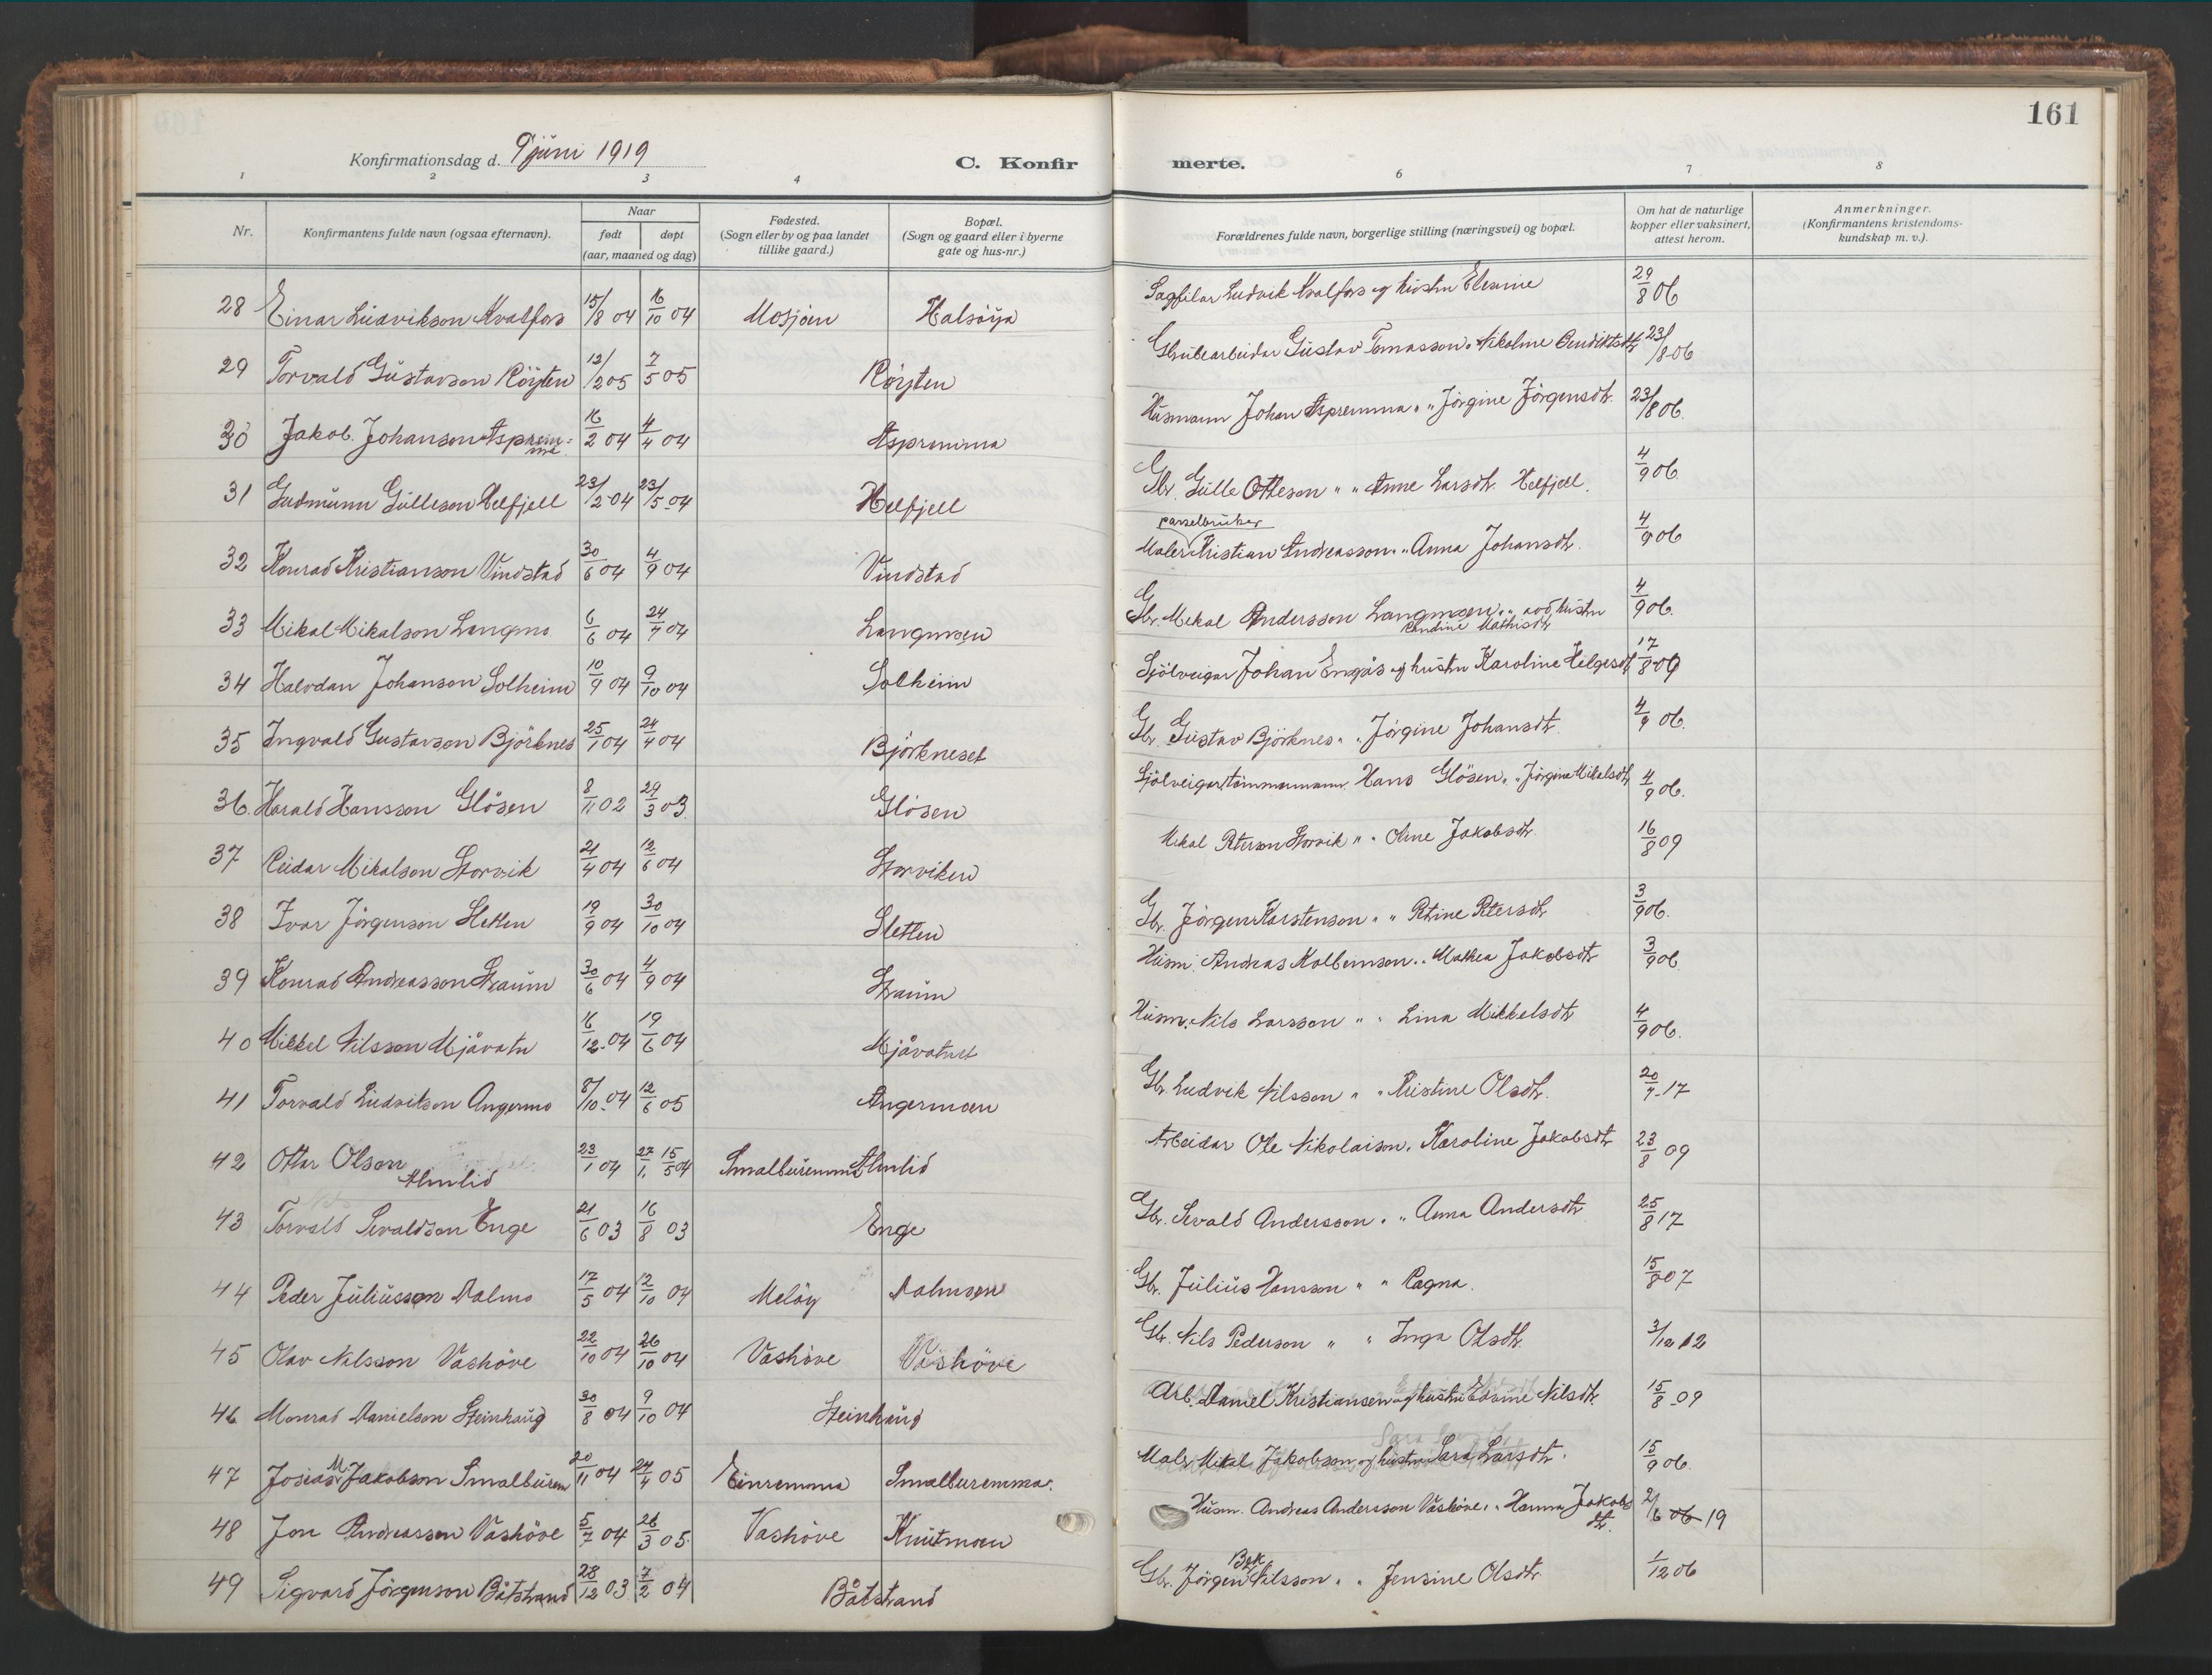 161
Konfirmationsdag d. 9 juni 1919
C. Konfir merte.
1 2 3 4 6 7 8
Nr.
Konfirmantens fulde navn (ogsaa efternavn).
Naar
født døpt
(aar, maaned og dag)
Fødested.
(Sogn eller by og paa landet
tillike gaard.)
Bopæl.
(Sogn og gaard eller i byerne
gate og hus-nr.)
Forældrenes fulde navn, borgerlige stilling (næringsvei) og bopæl.
Om hat de naturlige
kopper eller vaksinert,
attest herom.
Anmerkninger.
(Konfirmantens kristendoms-
kundskap m. v.).
28 Einar Ludvikson Kvalfors 15/8 04 16/10 04 Mosjøen Halsöya Sagfilar Ludvik Kvalfors og hustru 29/8 06
29 Torvald Gustavson Röyten 12/2 05 7/5 05 Röyten Grubearbeidar Gustav Tomasson " Nikoline Bendiktsdtr 23/8 06
30 Jakob Johanson Aspremma 16/2 04 4/4 04 Aspremma Husmann Johan Aspremma " " Jörgine Jörgensdtr. 23/8 06.
31 Gudmunn Gulleson Helfjell 23/2 04 23/5 04 Helfjell Gbr. Gulle Otteson " " Anne Larsdtr. Helfjell. 4/9 06
32 Konrad Kristianson Vindstad 30/6 04 4/9 04 Vindstad Maler parselbruker Kristian Andreasson " " Anna Johansdtr. 4/9 06
33 Mikal Mikalson Langmo 6/6 04 24/7 04 Langmoen Gbr. Mikal Andersson Langmoen " " avd. hustru Mathisdtr 4/9 06.
34 Halvdan Johanson Solheim 10/9 04 9/10 04 Solheim Sjölveigar Johan Engås og hustru Karoline Helgesdtr 17/8 09
35 Ingvald Gustavson Björknes 25/1 04 24/4 04 Björkneset Gbr. Gustav Björknes " " Jörgine Johansdtr. 4/9 06.
36. Harald Hansson Glösen 8/11 02 29/3 03. Glösen Sjölveigar tömmermann Hans Glösen " " Jörgine Mikelsdtr 4/9 06.
37 Reidar Mikalson Storvik 21/4 04 12/6 04 Storviken Mikal Peterson Storvik " " Oline Jakobsdtr. 16/8 09
38 Ivar Jörgenson Sletten 19/9 04 30/10 04 Sletten Gbr. Jörgen Karstenson " " Petrine Petersdtr 3/9 06.
39 Konrad Andreasson Straum 30/6 04 4/9 04 Straum Husm. Andreas Kolbeinson " " Mathea Jakobsdtr 3/9 06
40 Mikkel Nilsson Mjåvatn 16/12 04 19/6 04 Mjåvatnet Husm. Nils Larsson " " Lina Mikkelsdtr 4/9 06.
41 Torvald Ludvikson Angermo 8/10 04 12/6 05 Angermoen Gbr. Ludvik Nilsson " " Kristine Olsdtr. 20/7 17
42 Ottar Olson Almlid 23/1 04 27/1, 15/5 04 Smalburemma Almlid Arbeidar Ole Nikolaison, Karoline Jakobsdtr 23/8 09
43 Torvald Sevaldson Enge 21/6 03 16/8 03 Enge Gbr. Sevald Andersson " " Anna Andersdtr 25/8 17
44 Peder Juliusson Dalmo 17/5 04 12/10 04 Melöy Dalmoen Gbr. Julius Hansson " " Ragna. 15/8 07
45 Olav Nilsson Vashöve 22/10 04 26/10 04 Vashöve Vashöve Gbr. Nils Pederson " " Inga Olsdtr. 3/10 12
46 Monrad Danielson Steinhaug 30/8 04 9/10 04 Steinhaug Arb. Daniel Kristiansen og hustru Edvine Nilsdtr. 15/8 09
47 Josias M. Jakobson Smalburem 20/11 04 24/4 05 Einremma Smalburemma. Maler Mikal Jakobson og hustru Sara Larsdtr. 15/9 06.
48 Jon Andreasson Vashöve 5/7 04 26/3 05 Vashöve Knutmoen Husm. Andreas Andersson Vashöve " " Hanna Jakobsdtr. 2/6 06 19
49 Sigvard Jörgenson Båtstrand 28/12 03 7/2 04 Båtstrand Gbr. Jörgen Bek Nilsson " " Jensine Olsdtr. 1/12 06